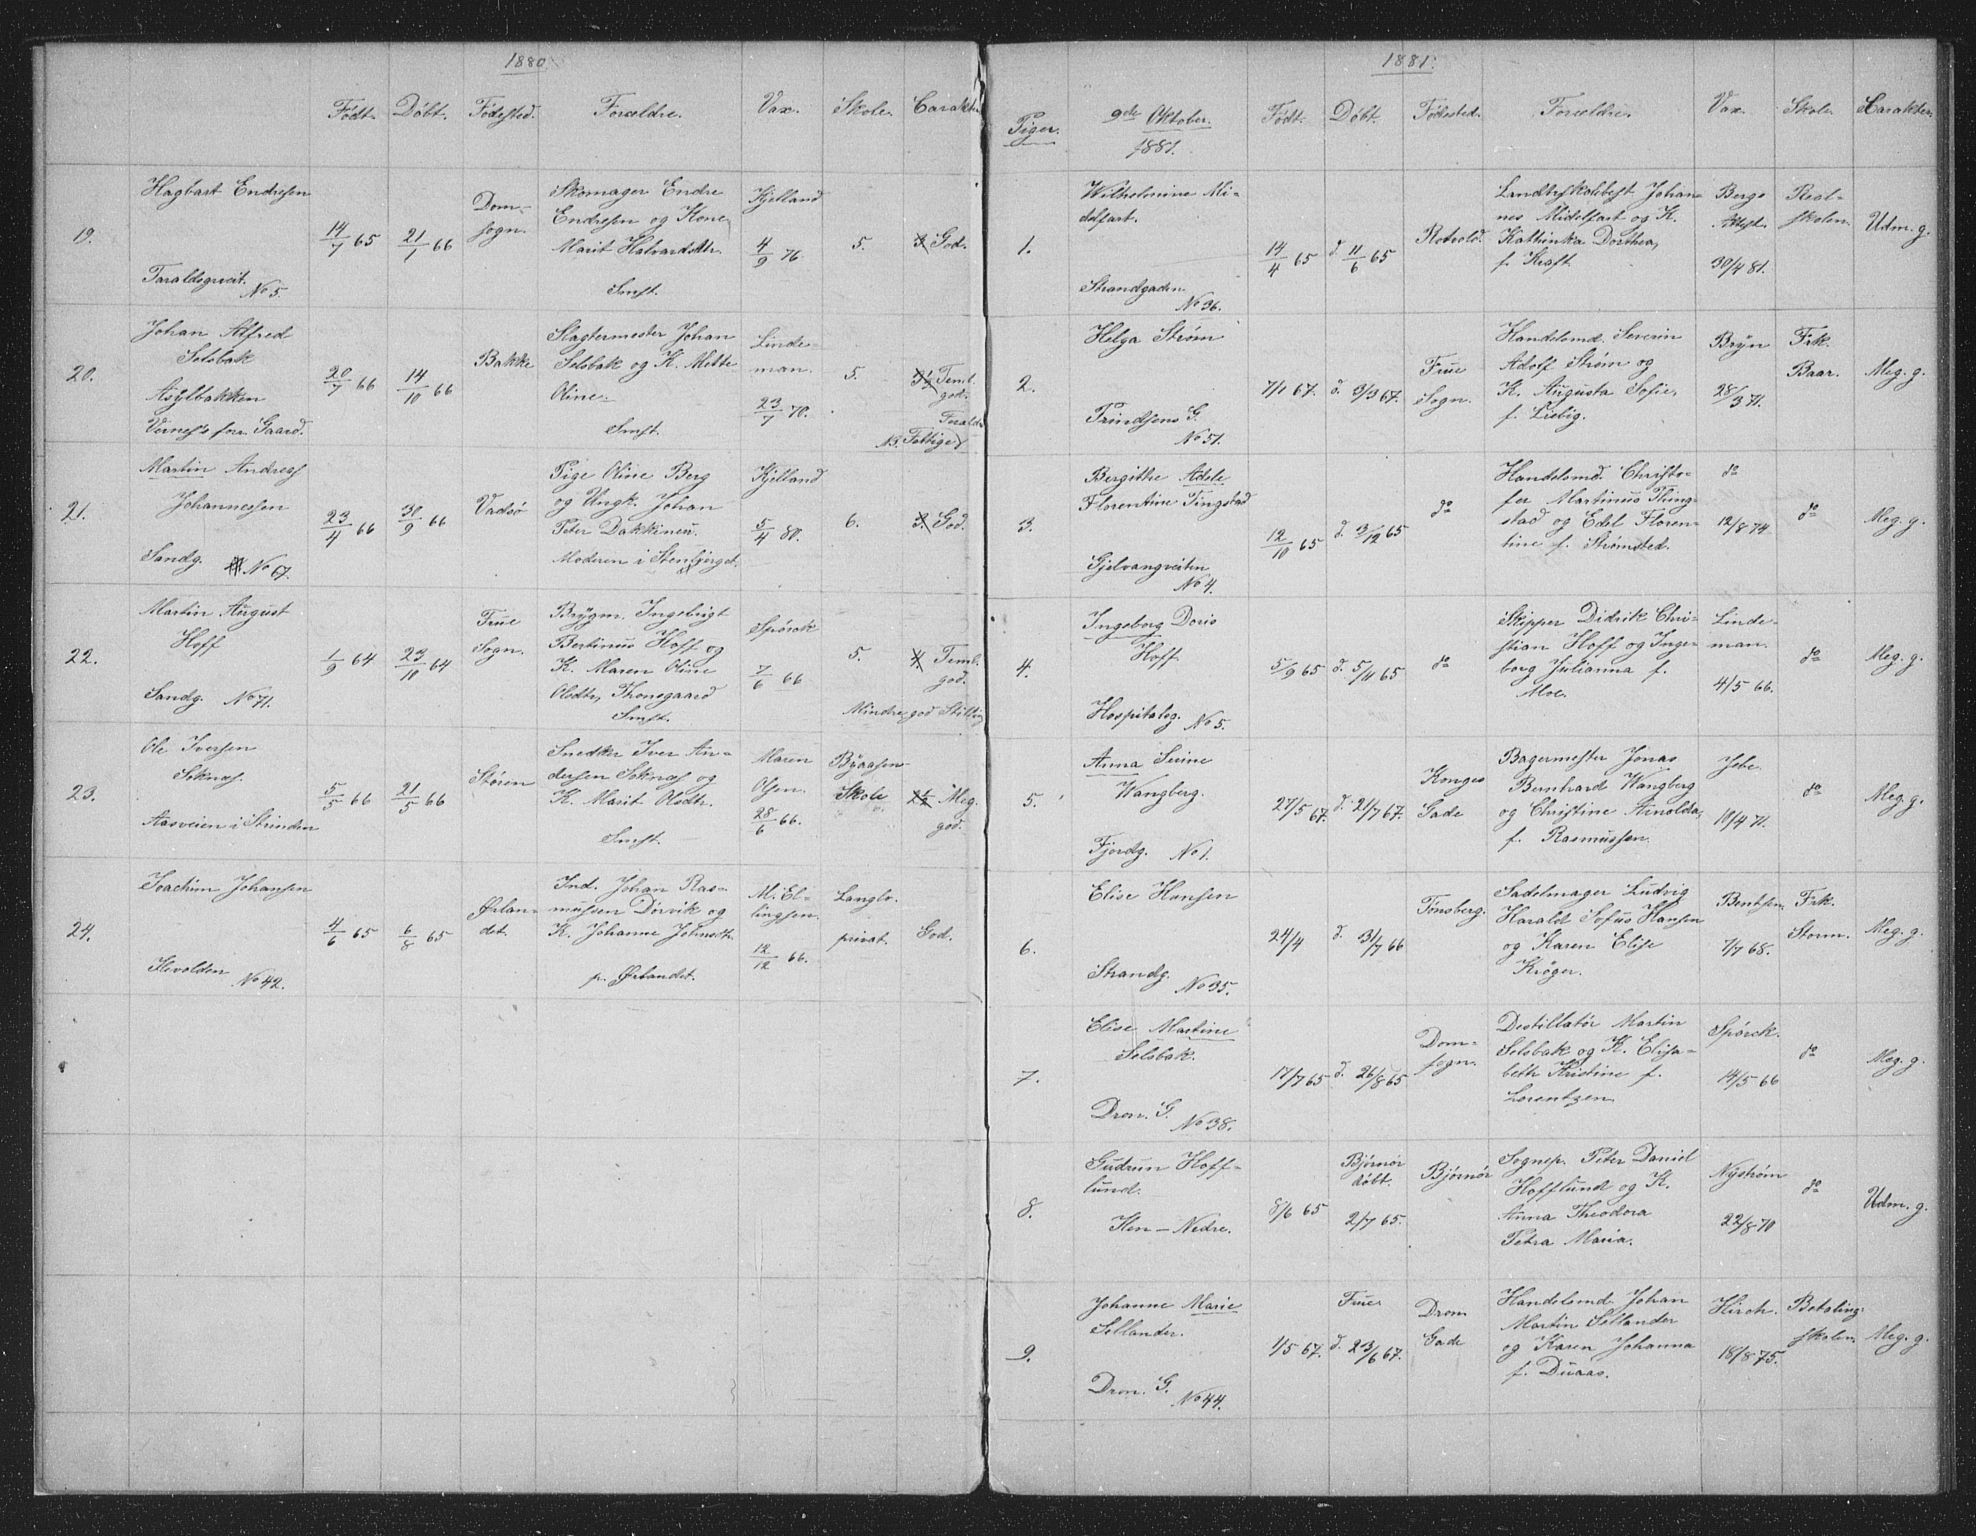 1880
Født. Døbt. Fødested. Forældre. Vax. Skole. Carakter
19.
Hagbart Endresen
Taraldsgveit. No 5.
14/7 65
21/7 66
Dom-
sogn.
Skomager Endre
Endresen og Kone
Marit Halvardsdtr.
Smst.
Kjelland
4/9 76
5.
God.
20.
Johan Alfred
Selsbak
Asylbakken
Vernes's forr. Gaard.
20/7 66
14/10 66
Bakke
Slagtermester Johan
Selsbak og K. Mette
Oline.
Smst.
Linde-
man.
23/7 70.
5.
Teml.
god.
NB. Fattige
21.
Martin Andreas
Johannessen
Sandg. No 67.
23/4 66
30/9 66
Vadsø
Pige Oline Berg
og Ungk. Johan
Peter Dakkinen.
Moderen i Stenbjerget.
Kjelland
5/4 80.
6.
God.
22.
Martin August
Hoff
Sandg. No 71.
1/9 64
23/10 64
Frue
Sogn.
Brygm. Ingebrigt
Bertinus Hoff og
K. Maren Oline
Olsdtr. Thonsgaard
Smst.
Spørck
7/6 66
5.
Teml.
god.
Mindre god Stilling
23.
Ole Iversen
Soknæs.
Aasveien i Strinden
5/5 66
21/5 66
Støren
Snedker Iver An-
dersen Soknæs og
K. Marit Olsdtr.
Smst.
Maren
Olsen.
28/6 66.
Byaasen
Skole
Meg.
god.
24.
Joachim Johansen
Ilevolden No 42.
4/6 65
6/8 65
Ørlan-
det.
Ind. Johan Ras-
mussen Dørvik og
K. Johanne Johnsdtr.
p. Ørlandet.
M. El-
lingsen.
12/12 66.
Langlo.
privat.
God.
1881.
Piger. 9de Oktober
1881.
Født. Døbt. Fødested. Forældre. Vax. Skole. Carakter.
1.
Wilhelmine Mi-
delfart.
Strandgaden
No 36.
14/4 65
d. 11/6 65
Rotvold.
Landbrskolebest. Johan-
nes Midelfart og K.
Kathinka Dorthea,
f. Kraft.
Bergs
Attest.
30/4 81.
Real-
skolen.
Udm. g.
2.
Helga Strøm
Prindsens G.
No 51.
7/1 67.
d. 3/3 67.
Frue
Sogn.
Handelsmd. Severin
Adolf Strøm og
K. Augusta Sofie,
f. Liebig.
Bryn
28/3 71.
Frk.
Baar.
Meg. g.
3.
Bergitthe Adele
Florentine Tingstad
Gjelvangveiten
No 4.
12/10 65
d. 3/12 65
do
Handelsmd. Christo-
fer Martinus Thing-
stad og Edel Floren-
tine f. Strømsted.
do
12/8 74
do
Meg. g.
4.
Ingeborg Doris
Hoff
Hospitalsg. No 5.
5/9 65
d. 5/11 65
do
Skipper Didrik Chri-
stian Hoff og Inge-
borg Julianna f.
Moe.
Linde-
man.
4/5 66.
do
Meg. g.
5.
Anna Sirine
Wangberg.
Fjordg. No 1.
27/5 67.
d. 21/7 67.
Konges
Gade
Bagermester Jonas
Bernhard Wangberg
og Christine Arnolda,
f. Rasmussen.
Jebe.
10/4 71.
do
Meg. g.
6.
Elise Hansen
Strandg.
No 35.
24/4
d. 31/7 66
Tønsberg.
Sadelmager Ludvig
Harald Sofus Hansen
og Karen Elise
Krøger.
Bentsen.
7/7 68.
Frk.
Storm.
Meg. g.
7.
Elise Martine
Selsbak.
Dron. G.
No 38.
17/7 65
d. 26/8 65
Dom-
sogn.
Destillatør Martin
Selsbak og K. Elisa-
beth Kristine f.
Lorentzen.
Spørck.
14/5 66
do
Meg. g.
8.
Gudrun Hoff-
lund.
Hen - Nedre.
8/6 65
Bjørnør
døbt.
2/7 65.
Bjørnør
Sognep. Peter Daniel
Hofflund og K.
Anna Theodora
Petra Maria.
Nystrøm
22/8 70
do
Udm. g.
9.
Johanne Marie
Sellander.
Dron. G.
No 44.
1/5 67.
Frue
d. 23/6 67.
Dron
Gade
Handelsmd. Johan
Martin Sellander
og Karen Johanna
f. Duaas.
Hirch.
18/8 75.
Betaling-
skolen.
Meg. g.